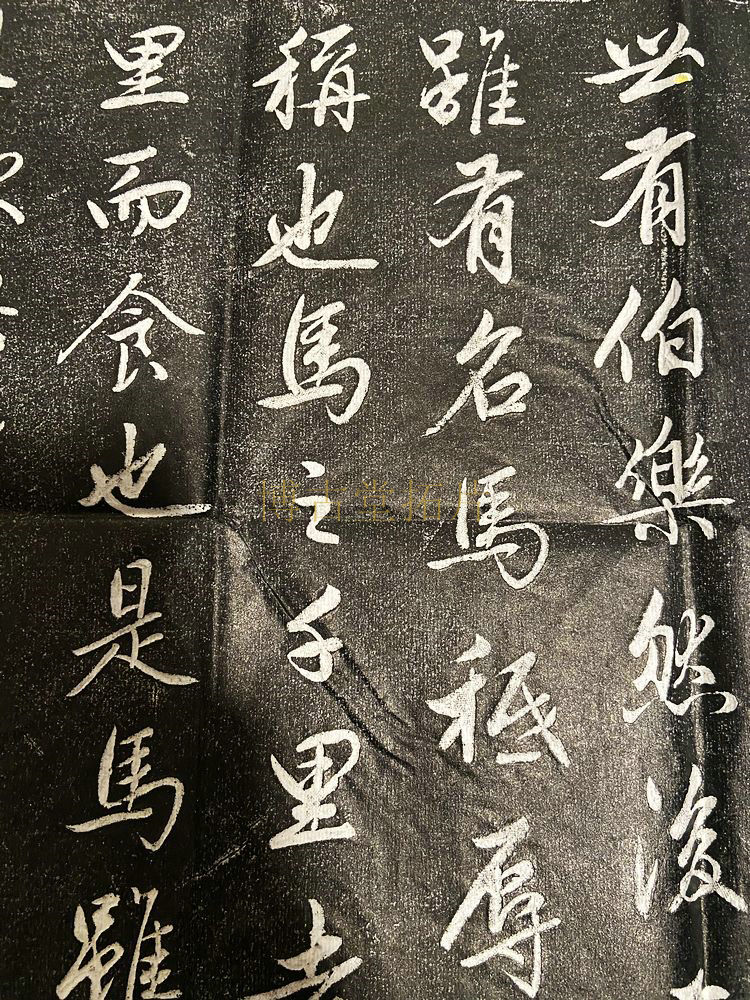 世有伯樂然後
雖有名馬秪辱
稱也馬之千里者
里而食也是馬雖
博古堂拓